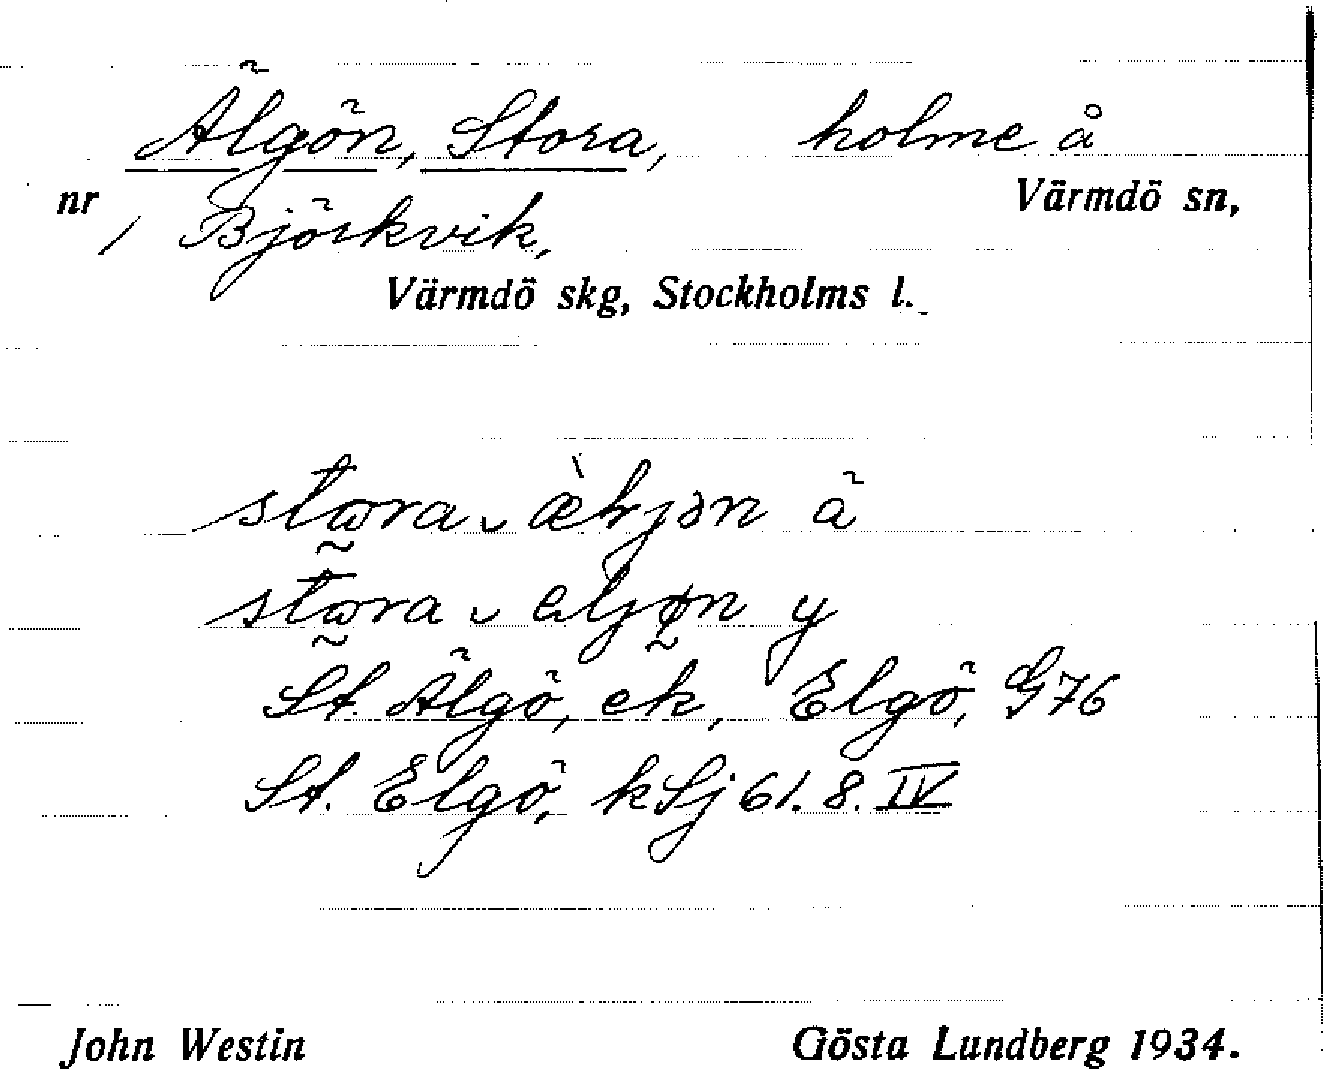 Älgön, Stora, holme å
nr / Björkvik, Värmdö sn,
Värmdö skg, Stockholms l.
stⱺra ˬ æ̀ljɘn å
stⱺra ˬ eljøn y
St. Älgö, ek, Elgö, G76
St. Elgö, kSj 61.8.IV
John Westin Gösta Lundberg 1934.